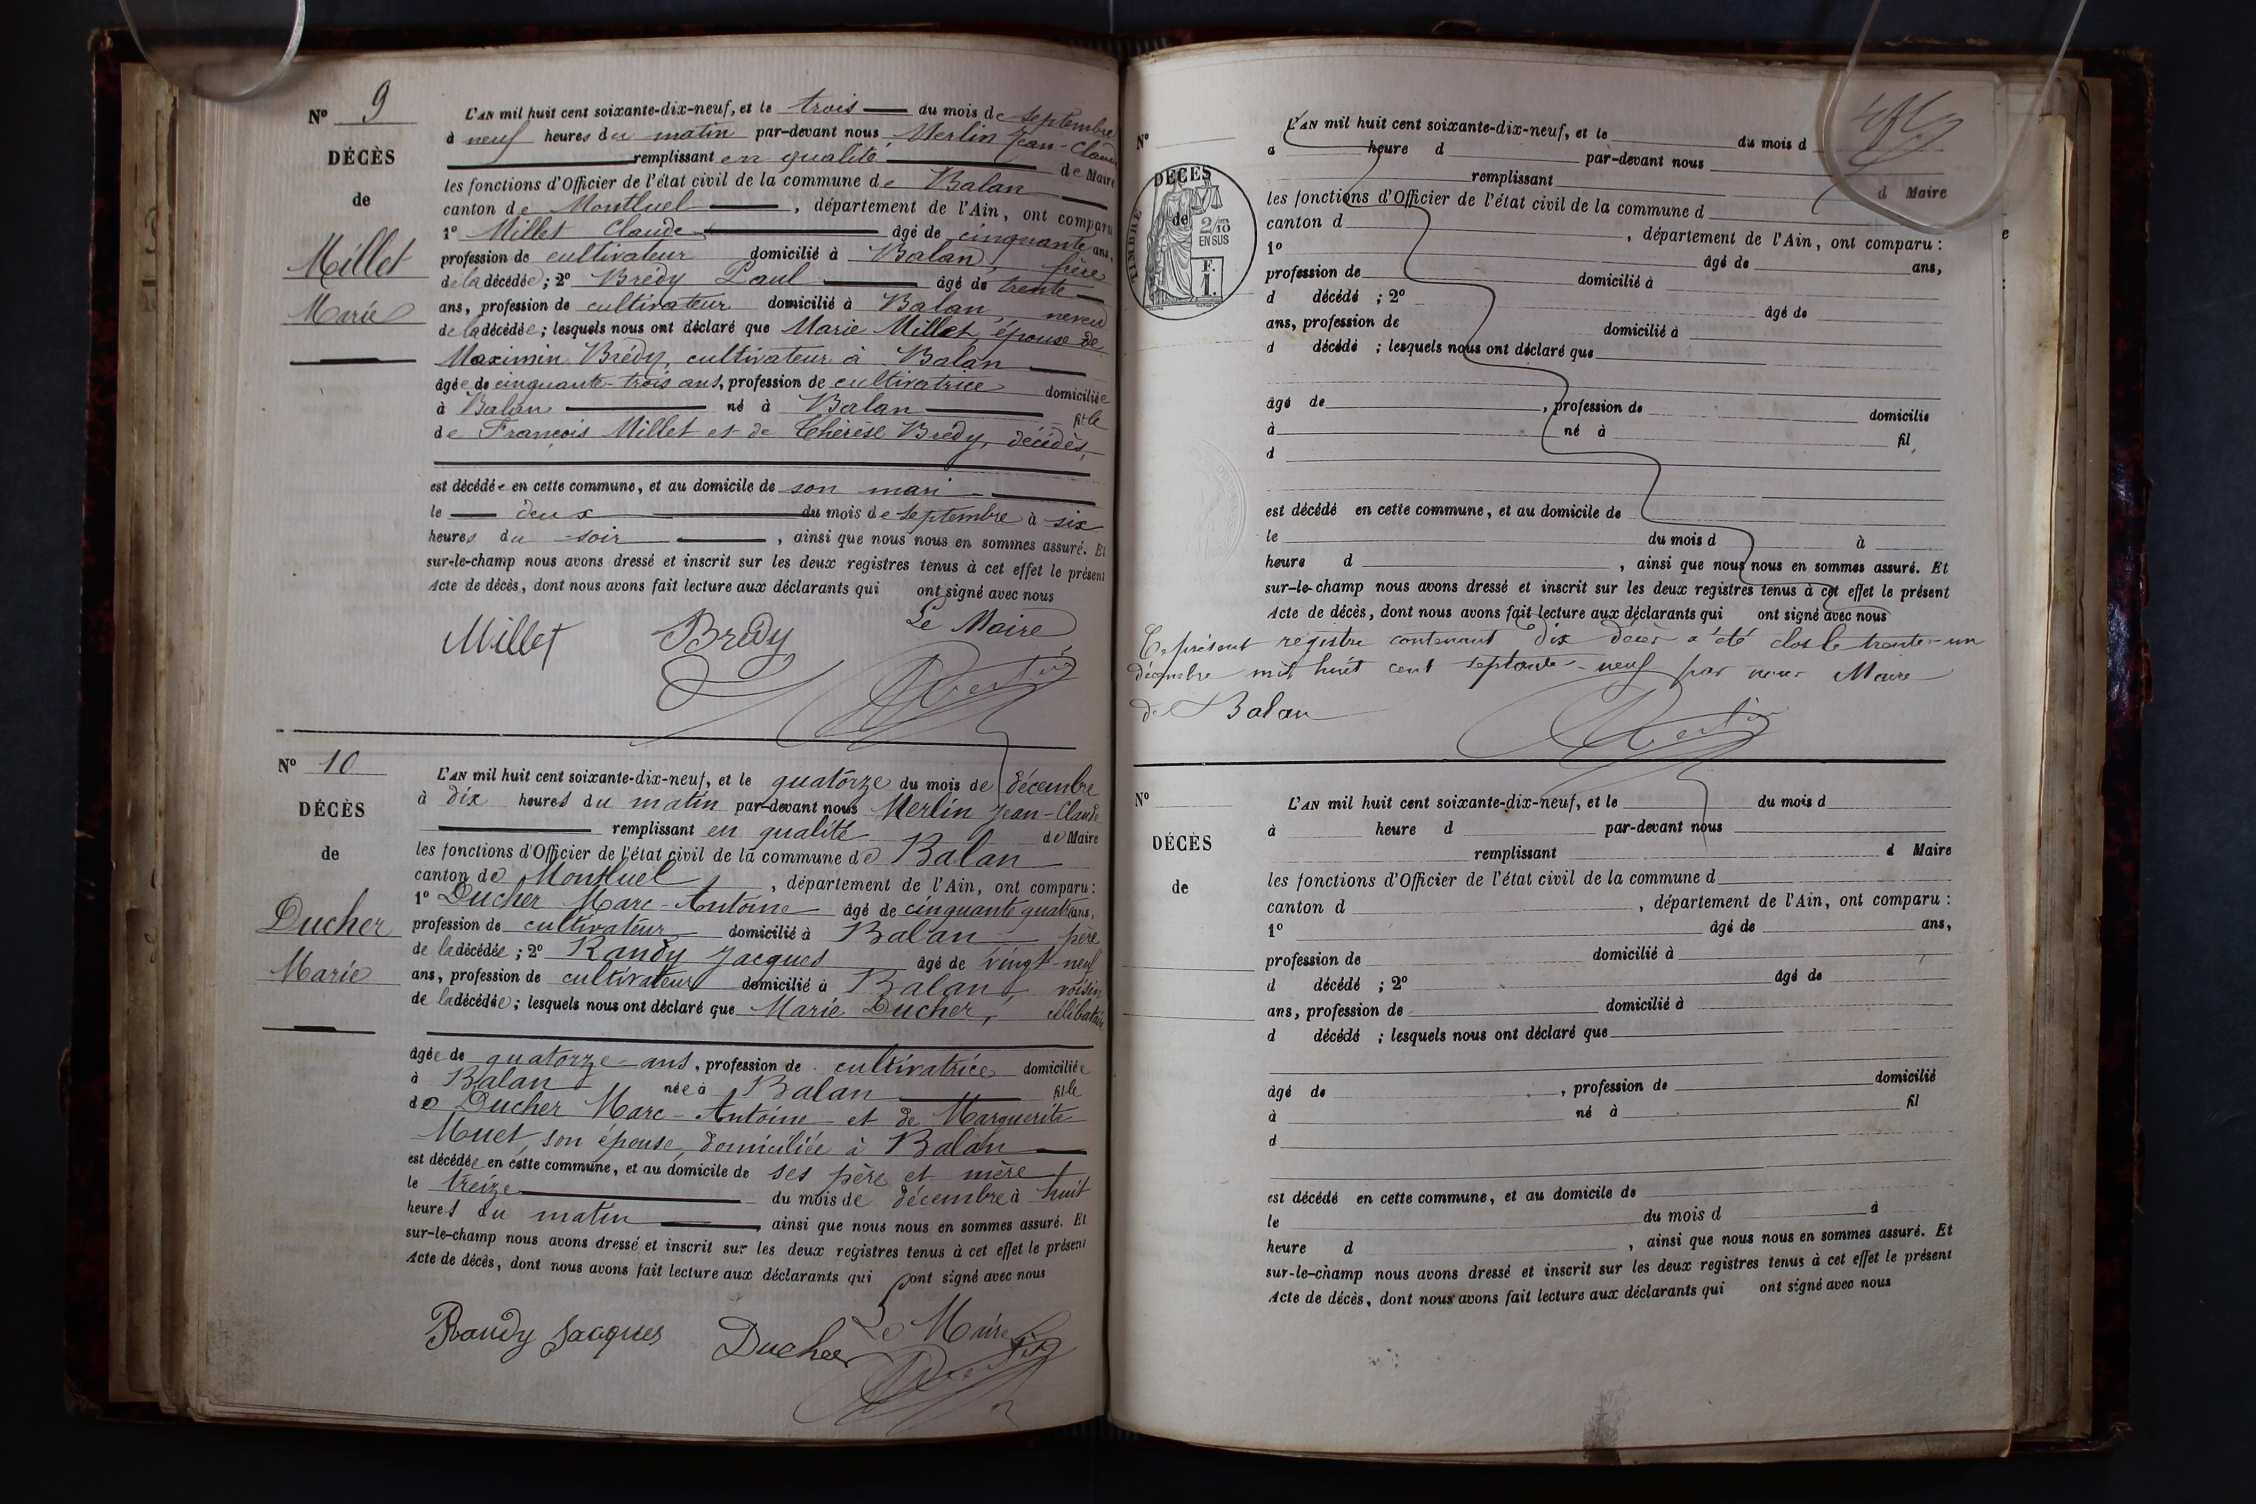 Nº 9
DÉCÈS
de
Millet
Marie
L'AN mil huit cent soixante-dix-neuf, et le trois du mois de septembre
à neuf heures du matin par-devant nous Merlin Jean-Claude
remplissant en qualité de Maire
les fonctions d'Officier de l'état civil de la commune de Balan
canton de Montluel, département de l'Ain, ont comparu
1º Millet Claude âgé de cinquante ans,
profession de cultivateur domicilié à Balan, frère
de la décédée; 2º Brédy Paul âgé de trente
ans, profession de cultivateur domicilié à Balan neveu
de la décédée; lesquels nous ont déclaré que Marie Millet, épouse de
Maximin Brédy, cultivateur à Balan
âgée de cinquante-trois ans, profession de cultivatrice domiciliée
à Balan né à Balan fille
de François Millet et de Thérèse Brédy, décédés,
est décédée en cette commune, et au domicile de son mari
le deux du mois de septembre à six
heures du soir, ainsi que nous nous en sommes assuré. Et
sur-le-champ nous avons dressé et inscrit sur les deux registres tenus à cet effet le présent
Acte de décès, dont nous avons fait lecture aux déclarants qui ont signé avec nous
Le Maire
Millet Bredy
Nº 10
DÉCÈS
de
Ducher
Marie
L'AN mil huit cent soixante-dix-neuf, et le quatorze du mois de décembre
à dix heures du matin par-devant nous Merlin Jean-Claude
remplissant en qualité de Maire
les fonctions d'Officier de l'état civil de la commune de Balan
canton de Montluel, département de l'Ain, ont comparu :
1º Ducher Marc-Antoine âgé de cinquante quatre ans,
profession de cultivateur domicilié à Balan père
de la décédée; 2º Randy Jacques âgé de vingt-neuf
ans, profession de cultivateur domicilié à Balan, voisin
de la décédée; lesquels nous ont déclaré que Marie Ducher, célibataire
âgée de quatorze ans, profession de cultivatrice domiciliée
à Balan née à Balan fille
de Ducher Marc-Antoine et de Marguerite
Muet, son épouse, domiciliée à Balan
est décédée en cette commune, et au domicile de ses père et mère
le treize du mois de décembre à huit
heures du matin ainsi que nous nous en sommes assuré. Et
sur-le-champ nous avons dressé et inscrit sur les deux registres tenus à cet effet le présent
Acte de décès, dont nous avons fait lecture aux déclarants qui ont signé avec nous
Le Maire
Randy Jacques Ducher
Nº
DÉCÈS
de
TIMBRE
2/10
EN SUS
F.
1.
L'AN mil huit cent soixante-dix-neuf, et le du mois d
à heure d par-devant nous
remplissant d Maire
les fonctions d'Officier de l'état civil de la commune d
canton d , département de l'Ain, ont comparu :
1º âgé de ans,
profession de domicilié à
d décédé ; 2º âgé de
ans, profession de domicilié à
d décédé ; lesquels nous ont déclaré que
âgé de , profession de domicilié
à né à fil
d
est décédé en cette commune, et au domicile de
le du mois d à
heure d , ainsi que nous nous en sommes assuré. Et
sur-le-champ nous avons dressé et inscrit sur les deux registres tenus à cet effet le présent
Acte de décès, dont nous avons fait lecture aux déclarants qui ont signé avec nous
Le présent registre contenant dix décès a été clos le trente-un
décembre mil huit cent septante-neuf par nous Maire
de Balan
Nº
DÉCÈS
de
L'AN mil huit cent soixante-dix-neuf, et le du mois d
à heure d par-devant nous
remplissant d Maire
les fonctions d'Officier de l'état civil de la commune d
canton d , département de l'Ain, ont comparu :
1º âgé de ans,
profession de domicilié à
d décédé ; 2º âgé de
ans, profession de domicilié à
d décédé ; lesquels nous ont déclaré que
âgé de , profession de domicilié
à né à fil
d
est décédé en cette commune, et au domicile de
le du mois d à
heure d , ainsi que nous nous en sommes assuré. Et
sur-le-champ nous avons dressé et inscrit sur les deux registres tenus à cet effet le présent
Acte de décès, dont nous avons fait lecture aux déclarants qui ont signé avec nous